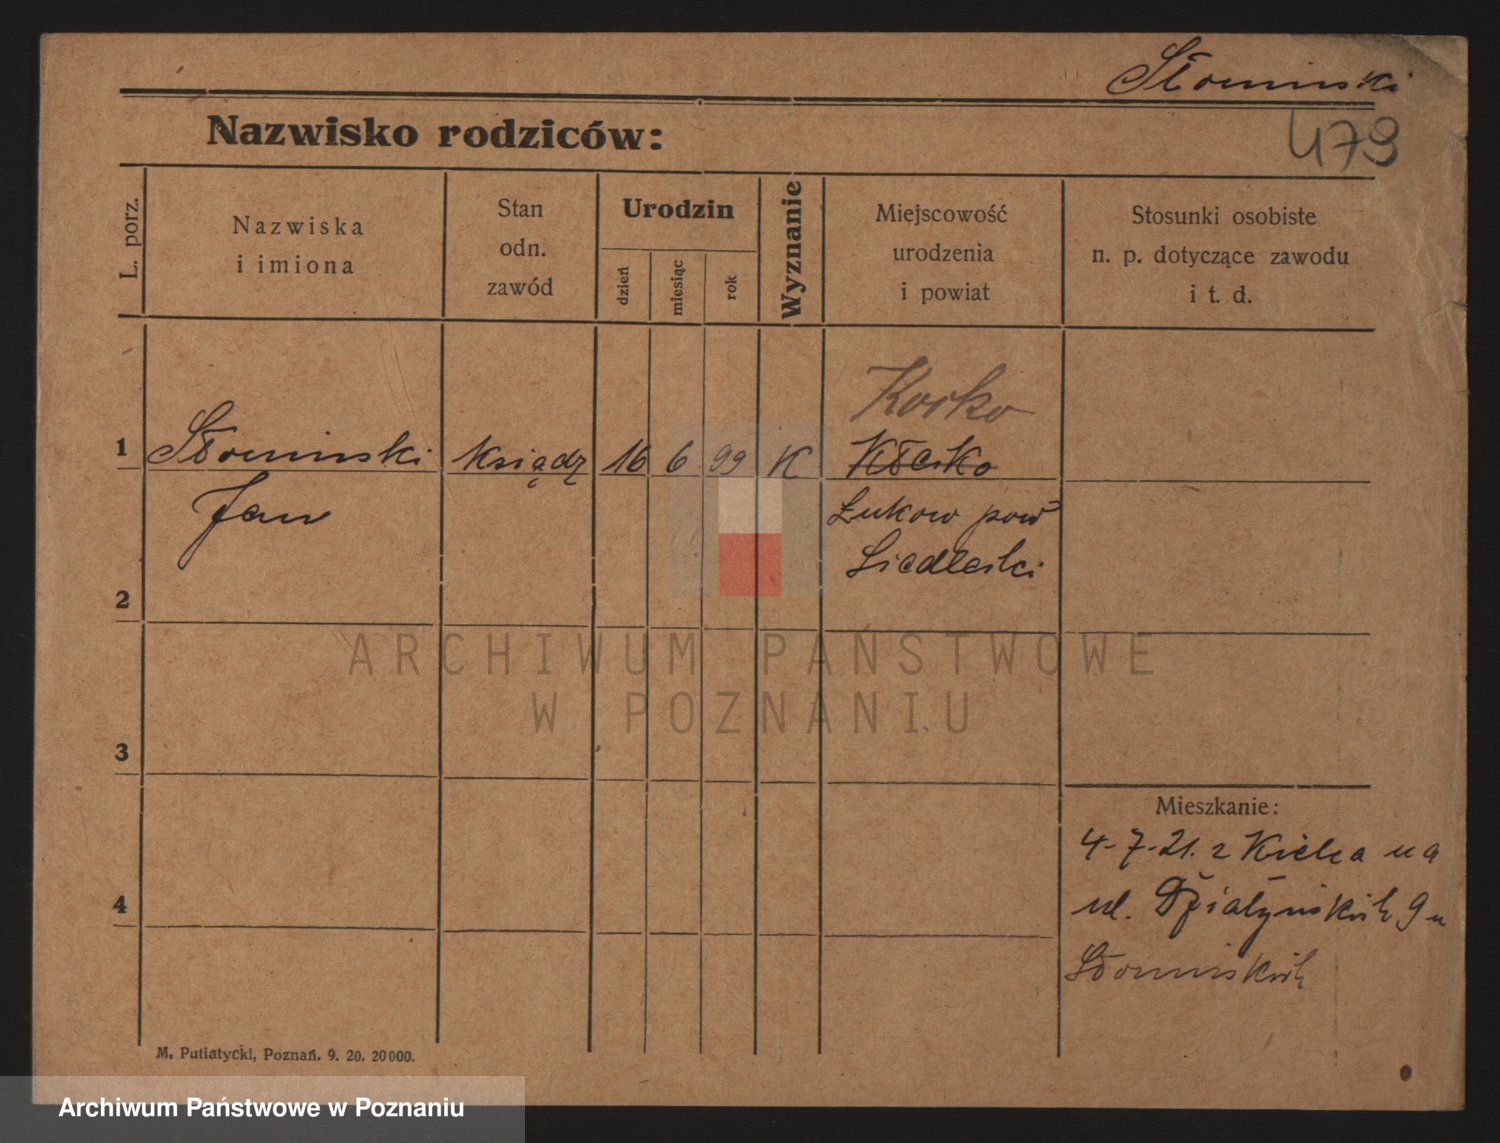 Słominski
Nazwisko rodziców:
479
L. porz.
Nazwiska
i imiona
Stan
odn.
zawód
Urodzin
dzień
miesiąc
rok
Wyznanie
Miejscowość
urodzenia
i powiat
Stosunki osobiste
n. p. dotyczące zawodu
i t. d.
Korko
1 Słominski ksiądz 16 6 99 K
Jan
Łukow pow
Siedlecki
2
3
4
Mieszkanie:
4-7-21. z Kielca na
ul. Działyńskich 9 u
Słominskich
M. Putiatycki, Poznań. 9. 20. 20000.
ARCHIWUM PAŃSTWOWE
W POZNANIU
Archiwum Państwowe w Poznaniu